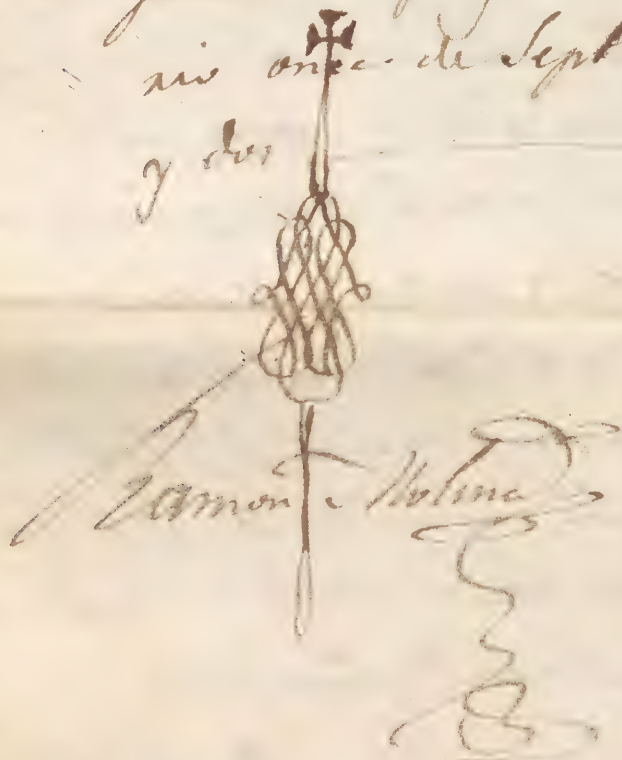 rio once de Sept
y dos
Ramon Molina